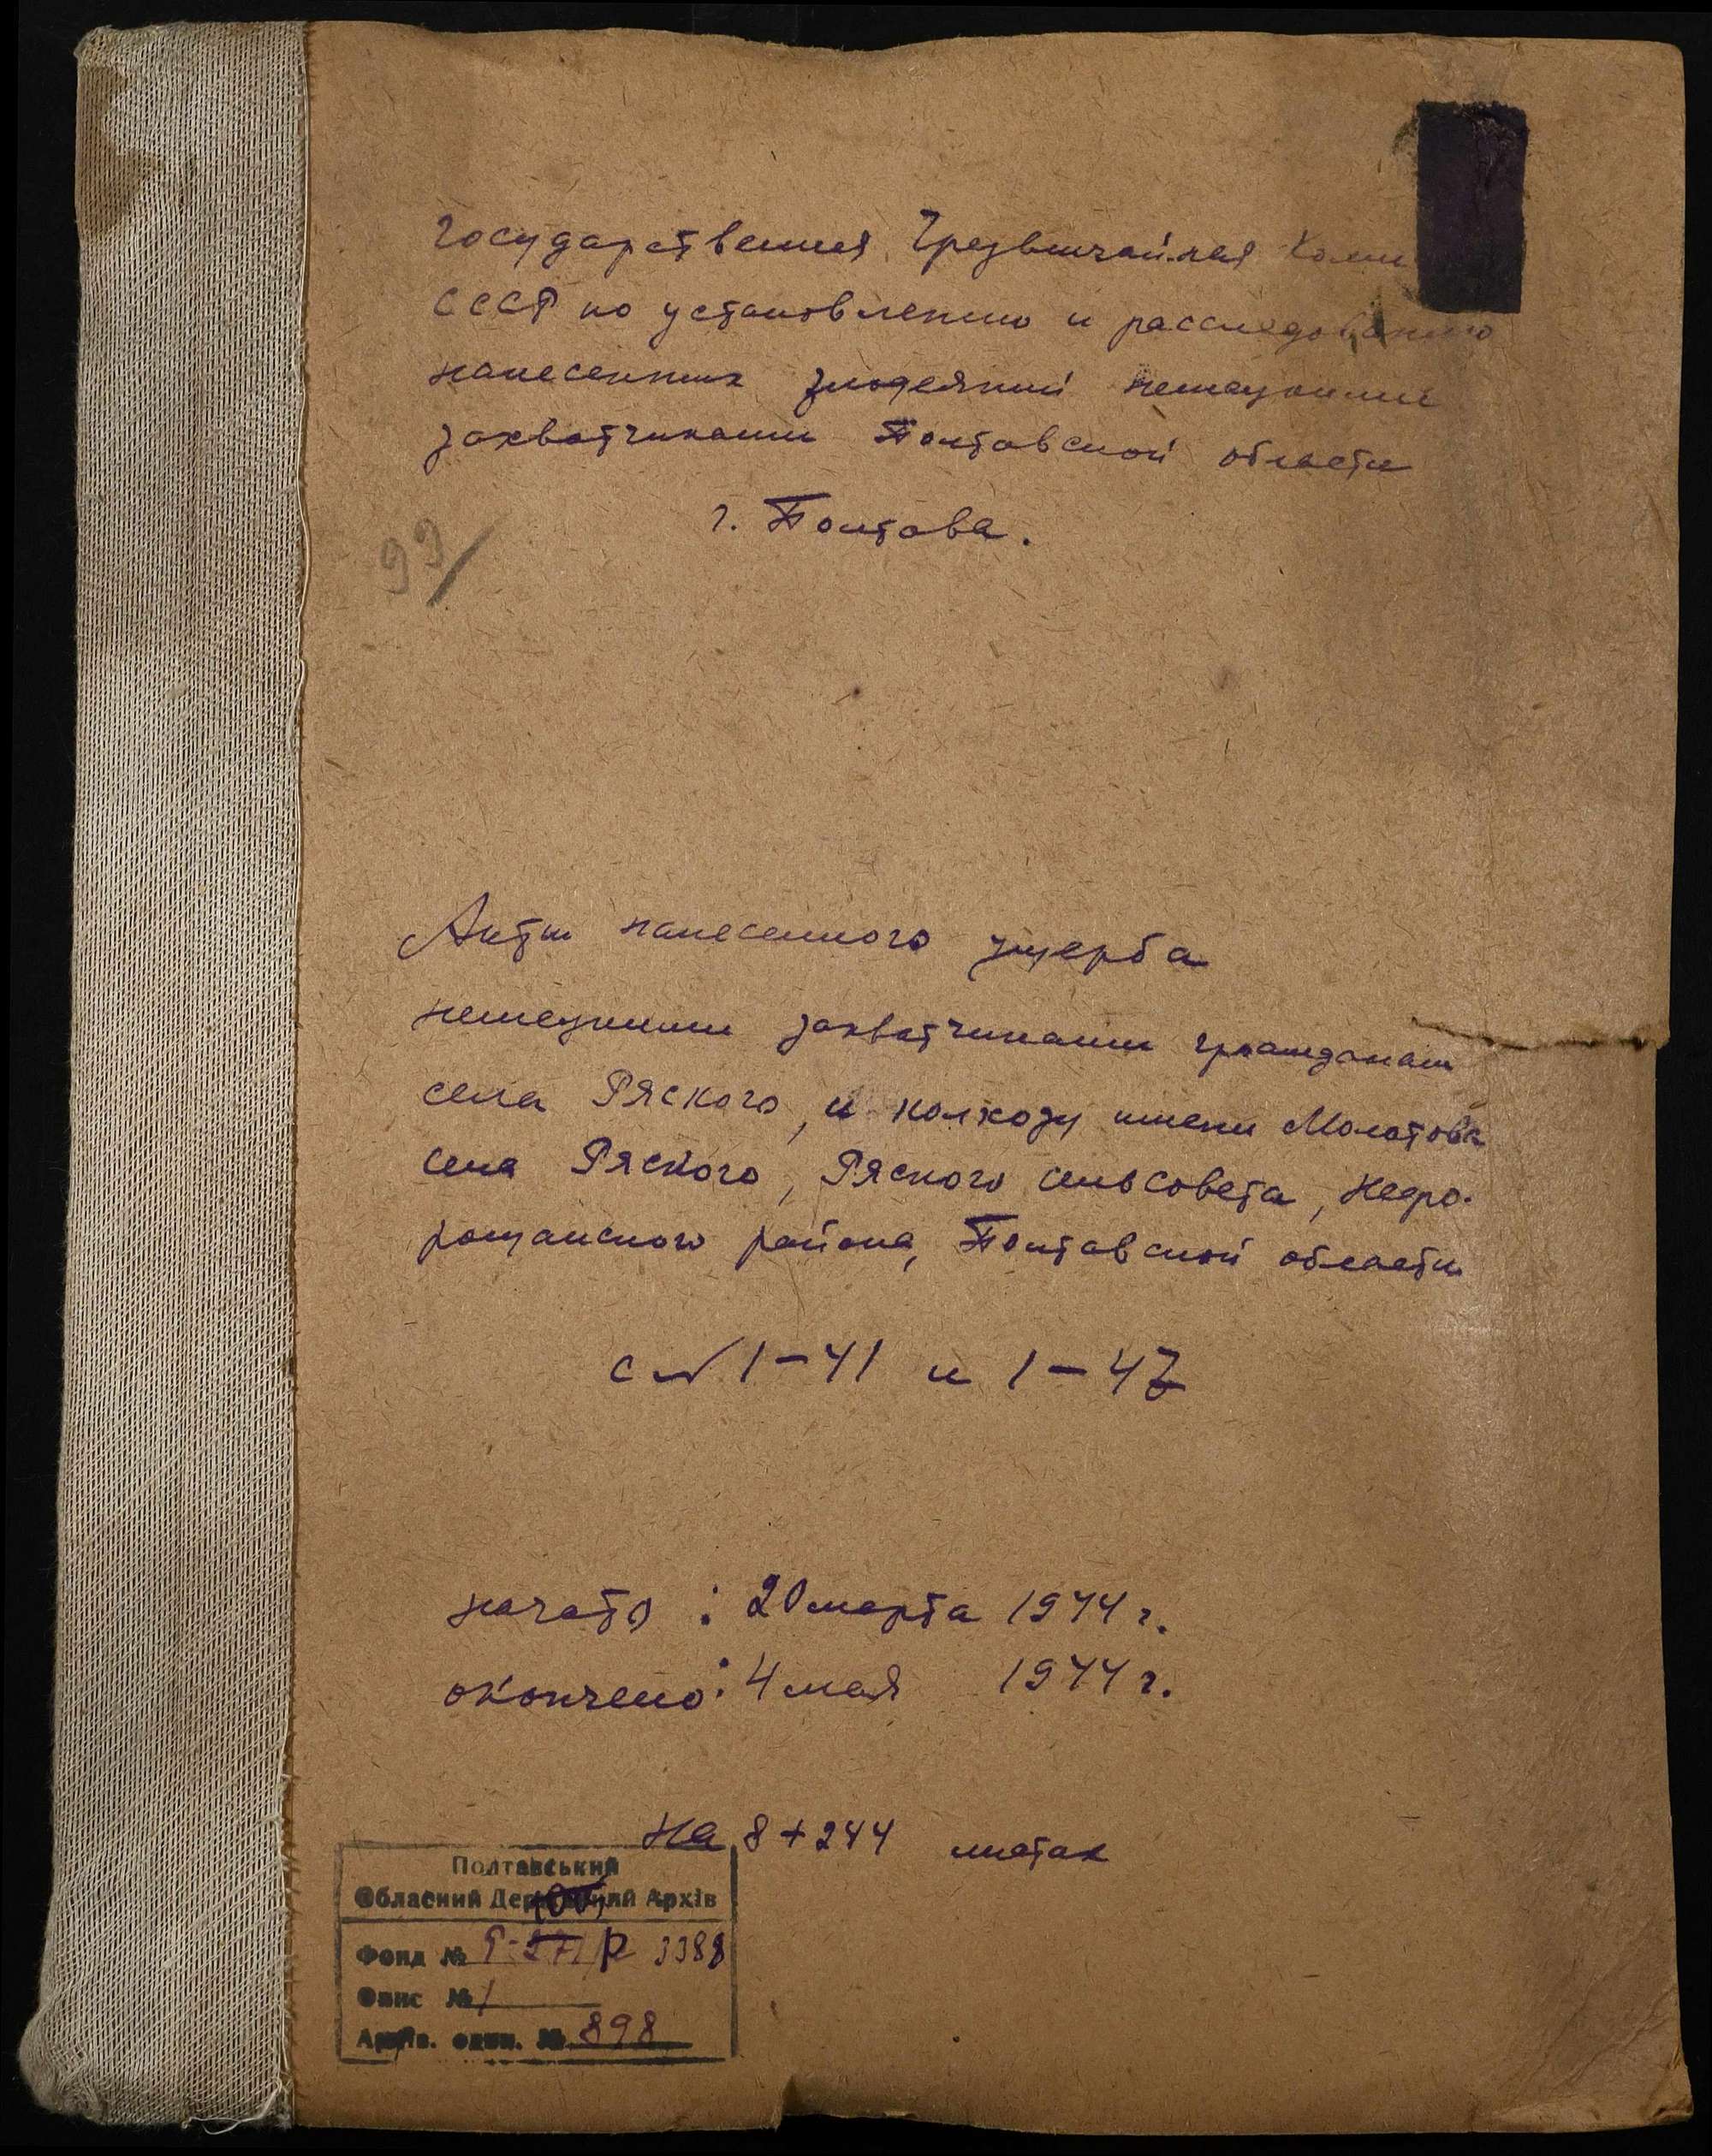 Государственная Чрезвычайная Коми
СССР по установлению и расследованию
нанесенных злодеяний немецкими
захватчиками Полтавской области
г. Полтава.
93/
Акты нанесенного ущерба
немецкими захватчиками гражданам
села Ряского, и колхозу имени Молотова
села Ряского, Ряского сельсовета, Нехво-
рощанского района, Полтавской области
с № 1-41 и 1-47
начато : 20 марта 1944 г.
окончено : 4 мая 1944 г.
На 8 + 244 листах
Полтавський
Обласний Державний Архів
Фонд № Р 3388
Опис № 1
Архів. один. № 898